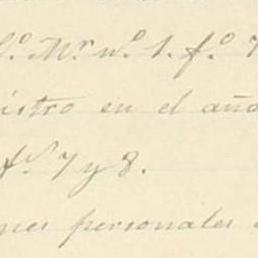 Mr nº 1. fº
istro en el año
fº 7 y 8.
nes personales